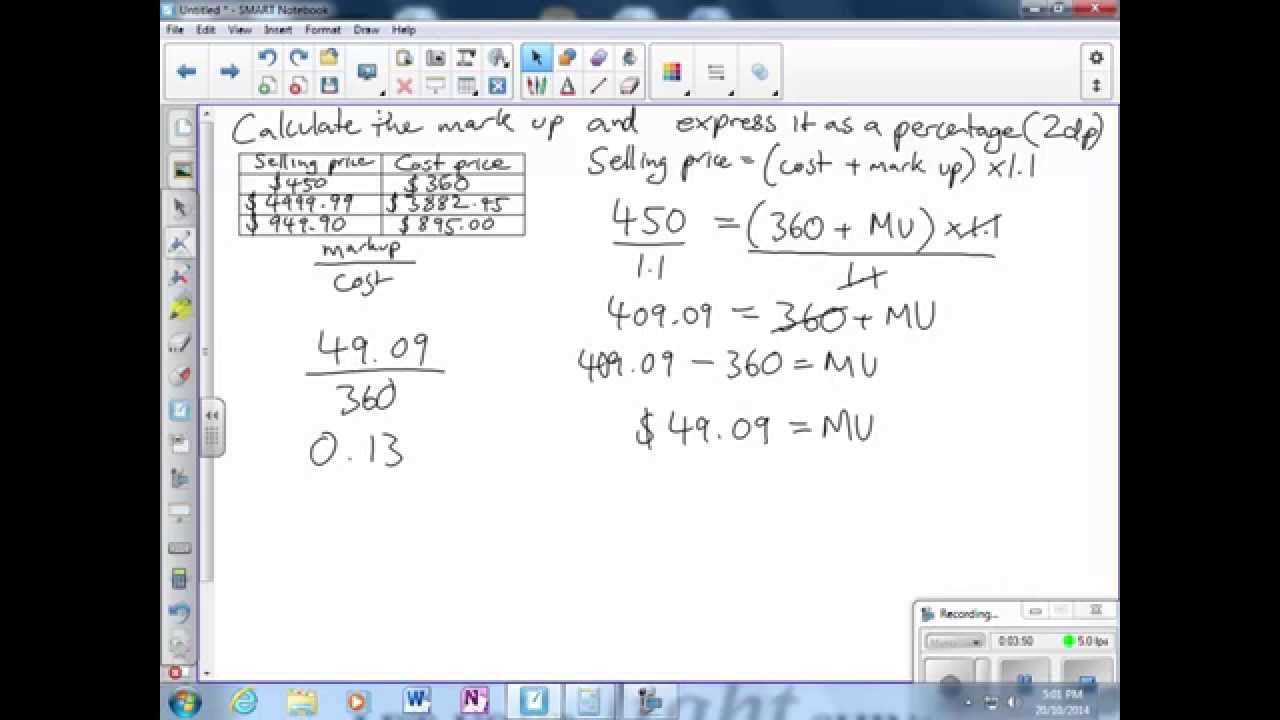 Untitled * - SMART Notebook
File Edit View Insert Format Draw Help
Calculate the mark up and express it as a percentage (2dp)
Selling price Cost price
$450 $360
$4999.99 $3882.45
$949.90 $895.00
markup
cost
49.09
360
0.13
Selling price = (cost + mark up) ×1.1
450 = (360 + MU) ×1.1
1.1 1.1
409.09 = 360 + MU
409.09 − 360 = MU
$49.09 = MU
Recording...
0:03:50 5.0 fps
5:01 PM
20/10/2014